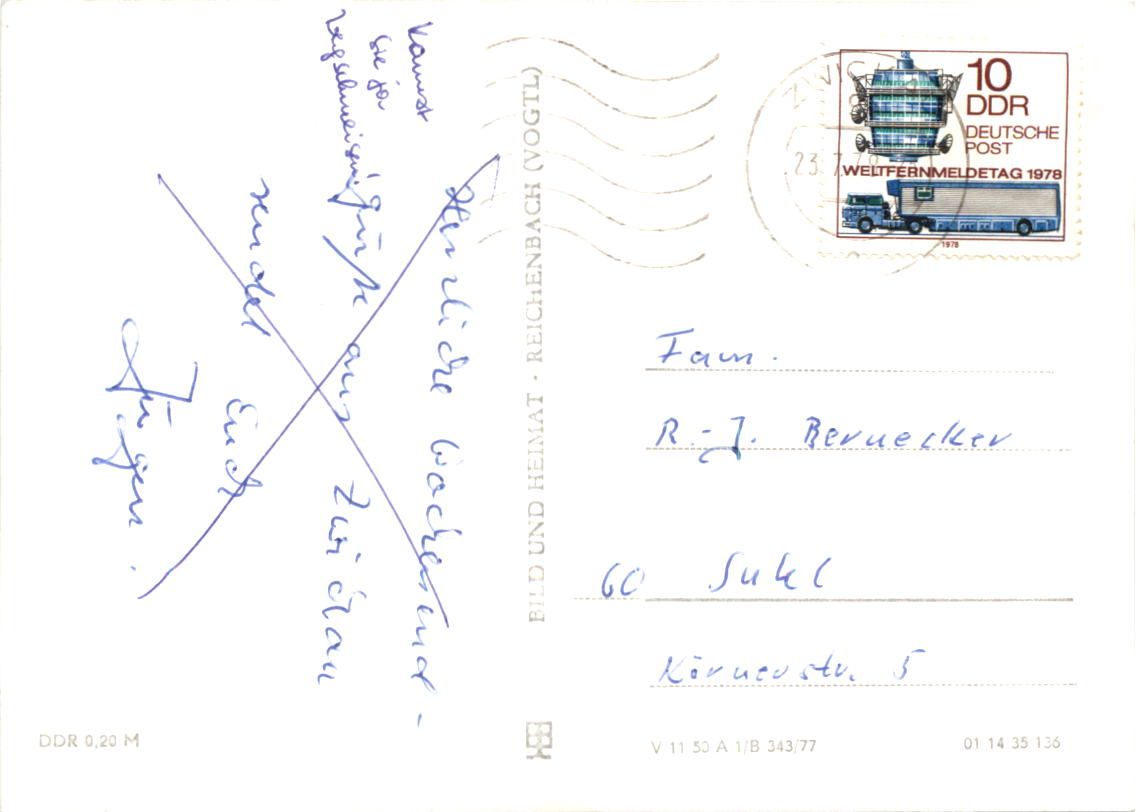 Kannst
sie ja
wegschmeißen
Herzliche Wochenend-
grüße aus Zwickau
sendet Euch
Jürgen.
BILD UND HEIMAT · REICHENBACH (VOGTL)
10
DDR
DEUTSCHE
POST
WELTFERNMELDETAG 1978
1978
23.7.78
Fam.
R.-J. Bernecker
60 Suhl
Körnerstr. 5
DDR 0,20 M
V 11 50 A 1/B 343/77
01 14 35 136